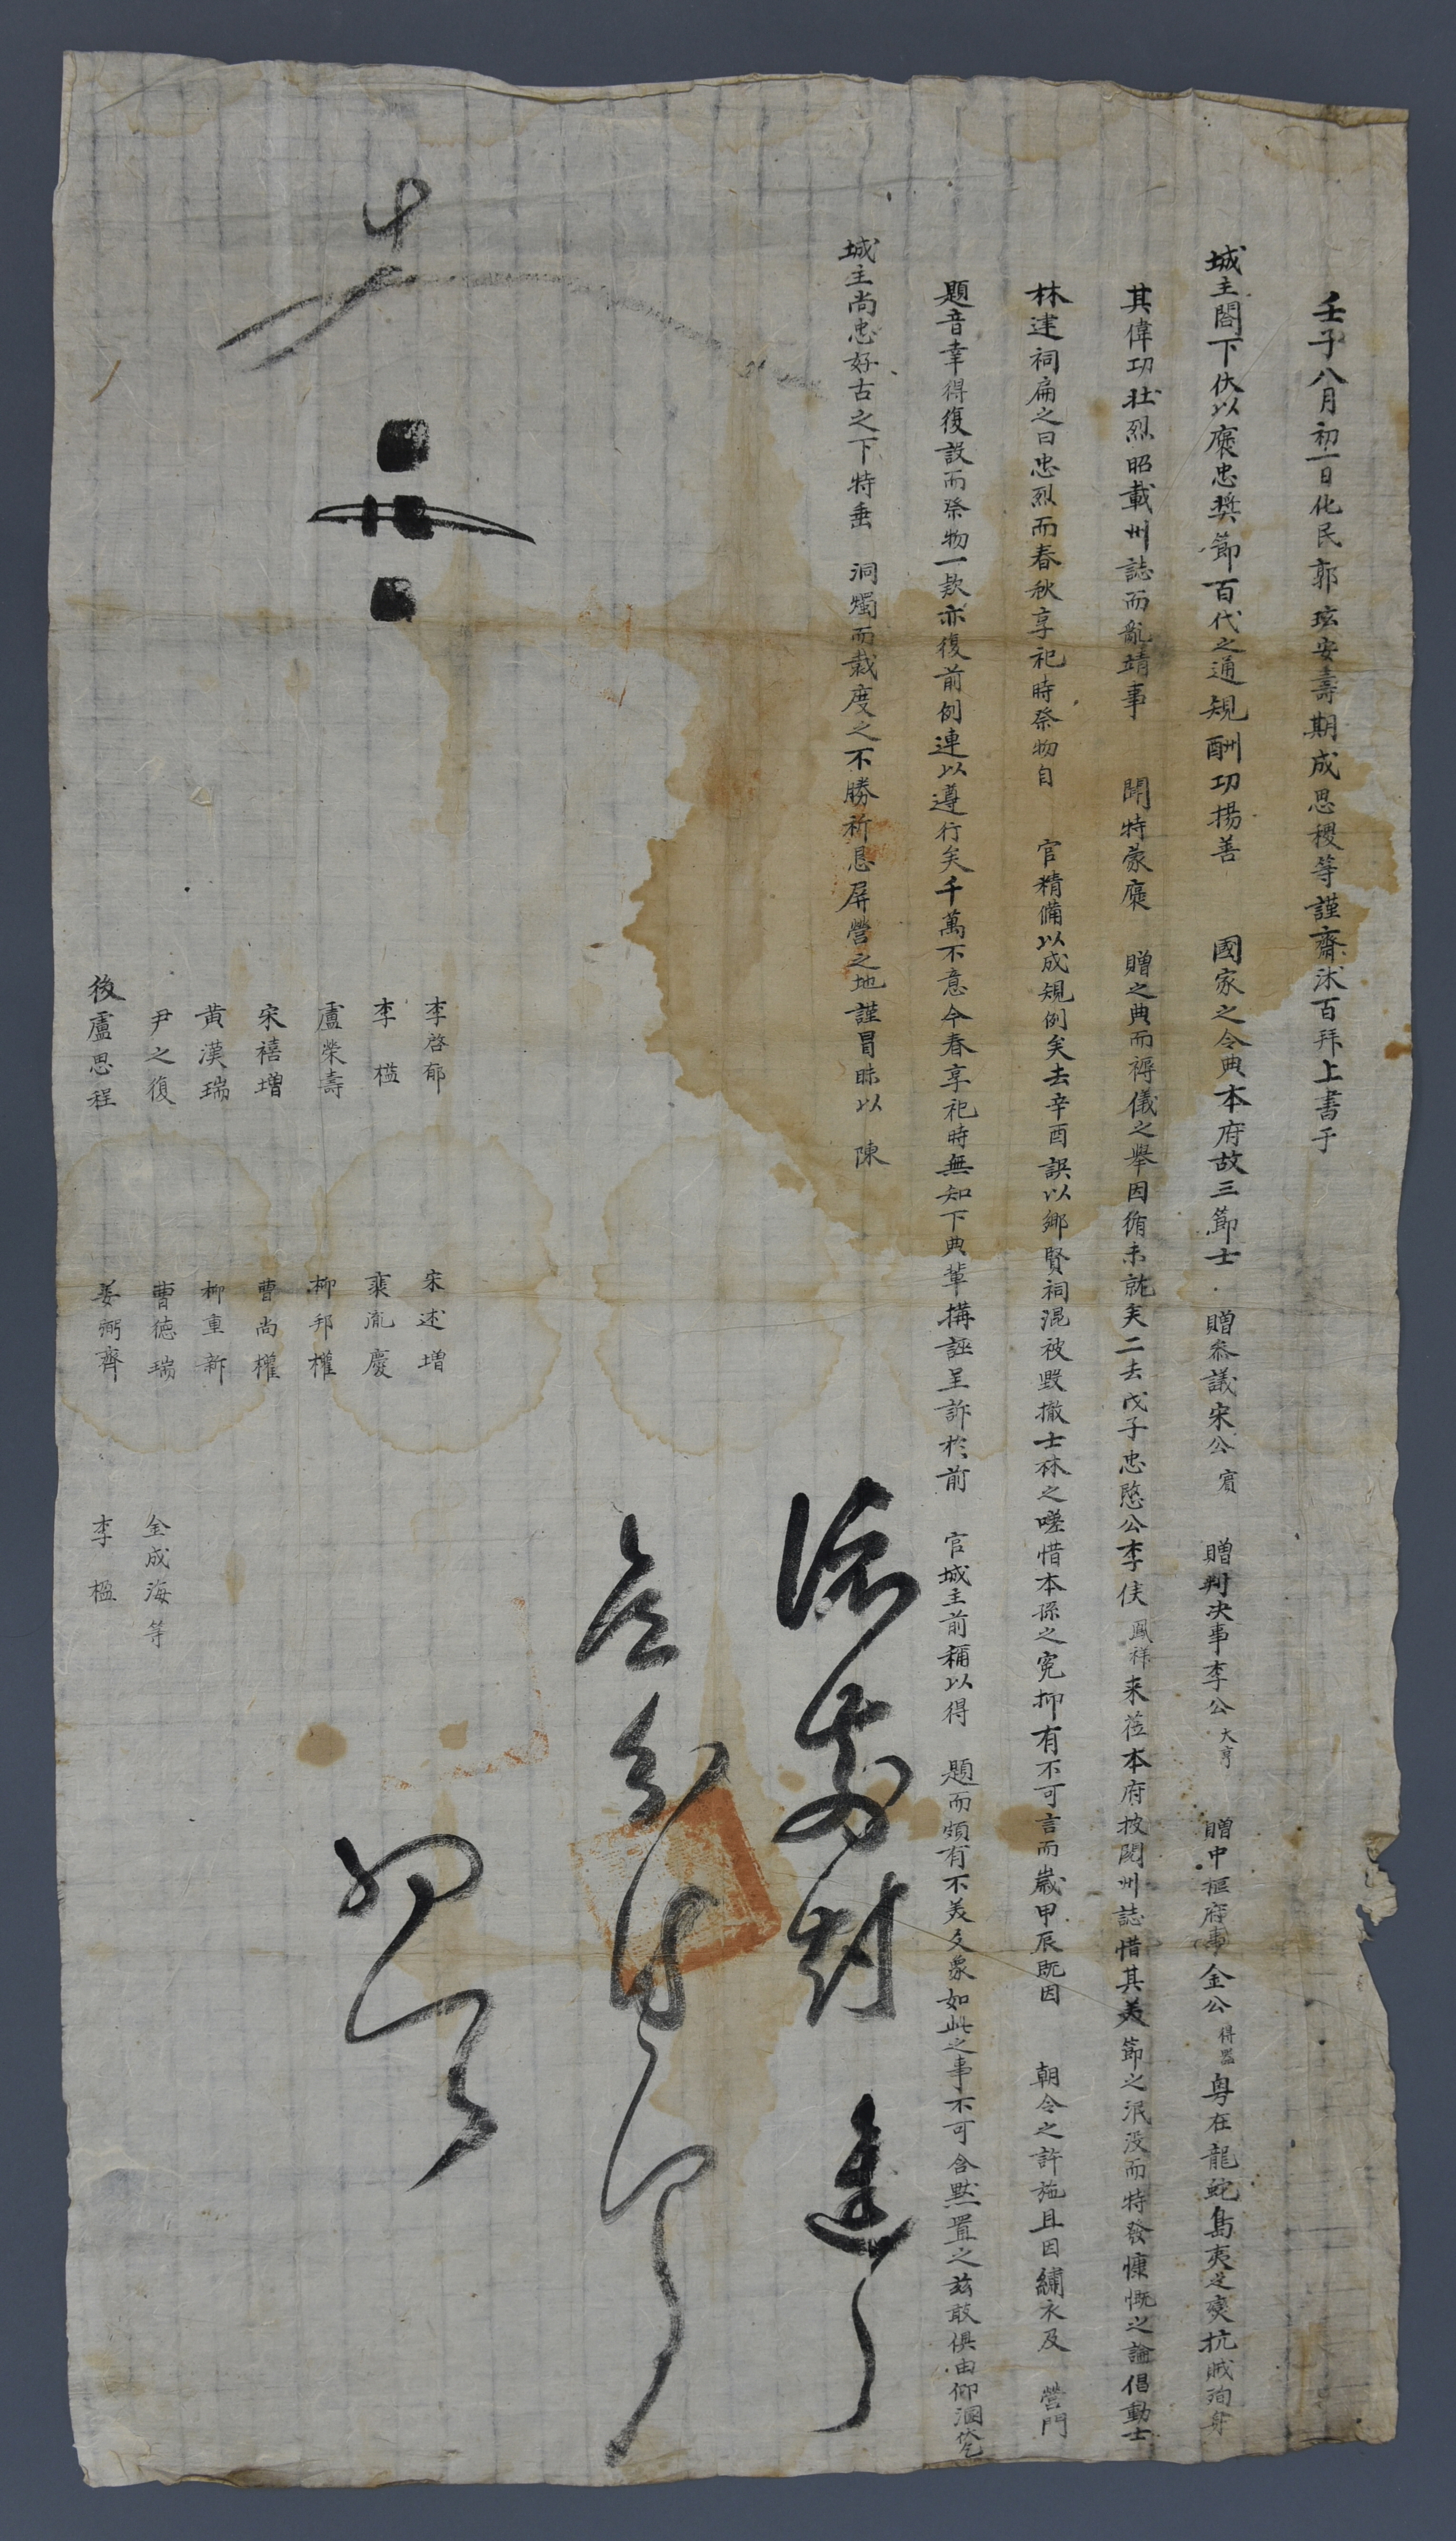 壬子八月初一日化民郭玹安壽期成思稷等謹齋沐百拜上書于
城主閤下伏以褒忠奬節百代之通規酬功揚善 國家之令典本府故三節士 贈參議宋公賓 贈判决事李公大亨 贈中樞府事金公得器粤在龍蛇島夷之變抗賊殉身
其偉功壯烈昭載州誌而亂靖事 聞特蒙褒 贈之典而褥儀之擧因循未就矣二去戊子忠愍公李侯鳳祥来莅本府披閱州誌惜其美節之泯没而特發慷慨之論倡動士
林建祠扁之曰忠烈而春秋享祀時祭物自 官精備以成規例矣去辛酉誤以鄉賢祠混被毀撤士林之嗟惜本孫之寃抑有不可言而歲甲辰既因 朝令之許施且因繡衣及 營門
題音幸得復設而祭物一款亦復前例連以遵行矣千萬不意今春享祀時無知下典輩搆誣呈訴於前 官城主前稱以得 題而頗有不美之㒱如此之事不可含黙置之玆敢俱由仰溷伏乞
城主尚忠好古之下特垂 洞燭而裁度之不勝祈恳屏營之地謹冒昧以 陳
李啓郁 宋述增
李榏 裵胤慶
盧榮壽 柳邦權
宋禧增 曹尚權
黄漢瑞 柳重新
尹之復 曹德瑞 金成海等
後盧思程 姜弼齊 李榲